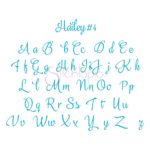 Hadley #4
A a B b C c D d E e
F f G g H h I i J j K k
L l M m N n O o P p
Q q R r S s T t U u
V v W w X x Y y Z z